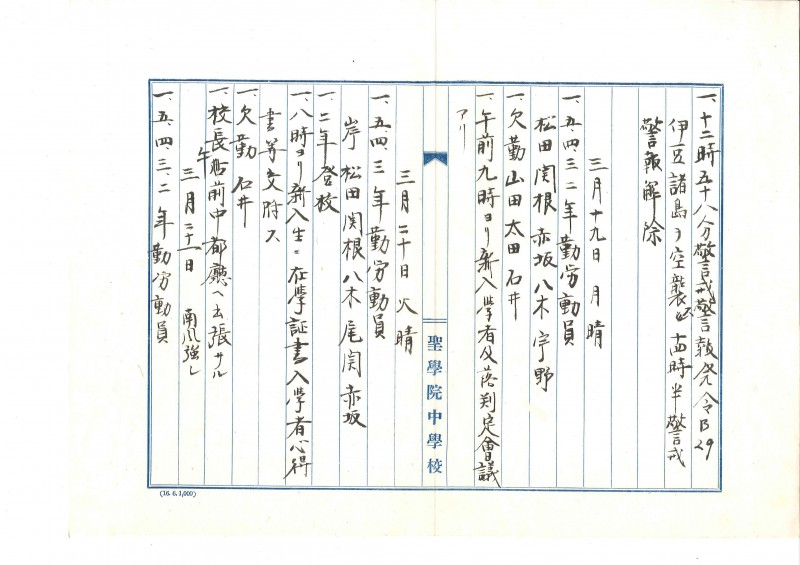 一、十二時五十八分警戒警報発令B29
伊豆諸島ヲ空襲ス 十四時半警戒
警報解除
三月十九日 月 晴
一、五、四、三、二年勤労動員
松田 関根 赤坂 八木 宇野
一、欠勤 山田 太田 石井
一、午前九時ヨリ新入学者及落判定會議
アリ
聖學院中學校
三月二十日 火 晴
一、五、四、三年勤労動員
岸 松田 関根 八木 尾関 赤坂
一、二年登校
一、八時ヨリ新入生ニ在學証書入學者心得
書等交附ス
一、欠勤 石井
一、校長午前中都廳ヘ出張サル
三月二十一日 南風強シ
一、五、四、三、二年勤労動員
(16. 6. 1,000)